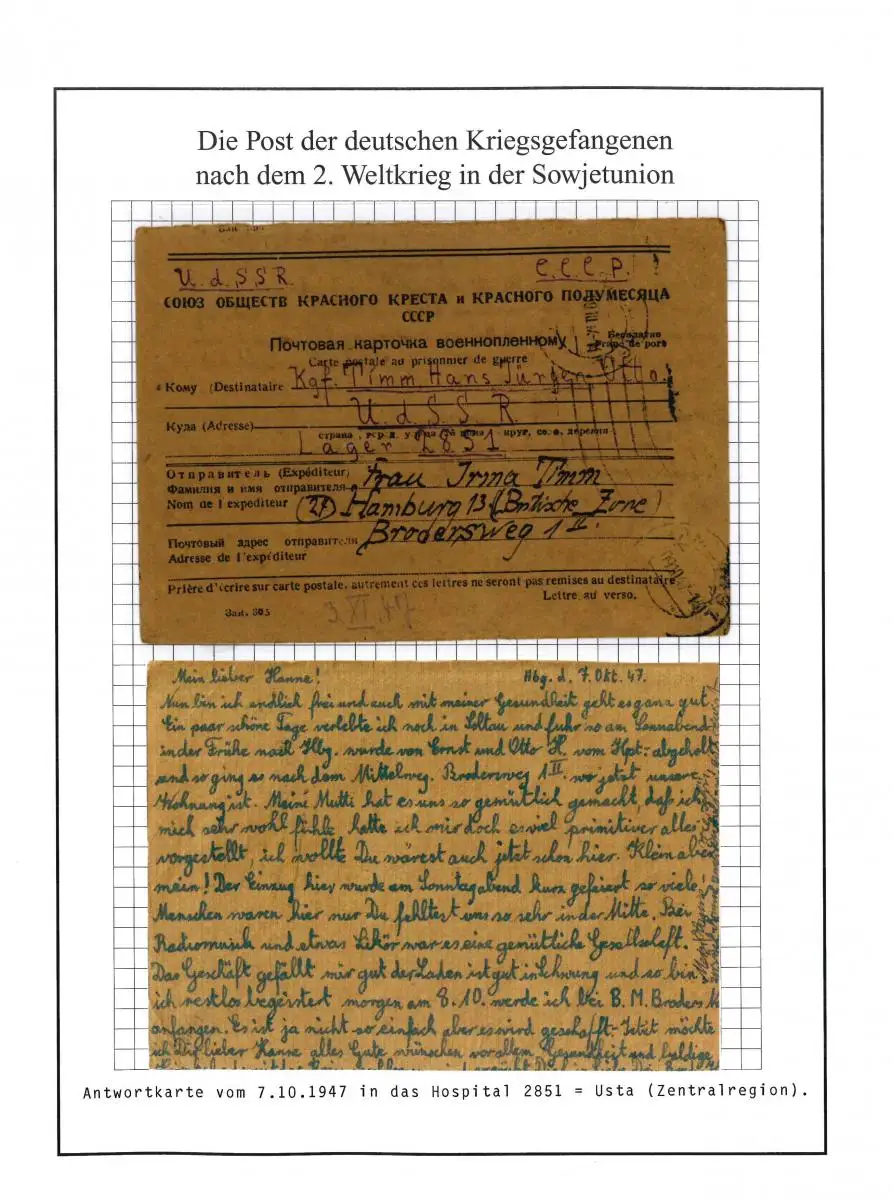 Die Post der deutschen Kriegsgefangenen
nach dem 2. Weltkrieg in der Sowjetunion
U.d.S.S.R. С.С.С.Р.
СОЮЗ ОБЩЕСТВ КРАСНОГО КРЕСТА и КРАСНОГО ПОЛУМЕСЯЦА
СССР
Почтовая карточка военнопленному Бесплатно
Carte postale au prisonnier de guerre Franc de port
Кому (Destinataire Kgf. Timm Hans Jürgen Otto.
Куда (Adresse) U d S S R
страна
Lager 2851
Отправитель (Expéditeur) Frau Irma Timm
Фамилия и имя отправителя
Nom de l expediteur (24) Hamburg 13 (Britische Zone)
Почтовый адрес отправителя Brodersweg 1 II.
Adresse de l'expéditeur
Prière d'écrire sur carte postale, autrement ces lettres ne seront pas remises au destinataire
Lettre au verso.
Зак. 305
3.XI.47
Mein lieber Hanne! Hbg. d. 7. Okt. 47.
Nun bin ich endlich frei und auch mit meiner Gesundheit geht es ganz gut
Ein paar schöne Tage verlebte ich noch in Soltau und fuhr so am Sonnabend
in der Frühe nach Hbg. wurde von Ernst und Otto H. vom Hpt. abgeholt
und so ging es nach dem Mittelweg. Brodersweg 1 II. wo jetzt unsere
Wohnung ist. Meine Mutti hat es uns so gemütlich gemacht, daß ich
mich sehr wohl fühle hatte ich mir doch es viel primitiver alles
vorgestellt, ich wollte Du wärest auch jetzt schon hier. Klein aber
mein! Der Einzug hier wurde am Sonntagabend kurz gefeiert so viele
Menschen waren hier nur Du fehltest uns so sehr in der Mitte. Bei
Radiomusik und etwas Likör war es eine gemütliche Gesellschaft.
Das Geschäft gefällt mir gut der Laden ist gut in Schwung und so bin
ich restlos begeistert morgen am 8.10. werde ich bei B. M. Broders
anfangen. Es ist ja nicht so einfach aber es wird geschafft. Jetzt möchte
ich Dir lieber Hanne alles Gute wünschen vor allem Gesundheit und baldige
Antwortkarte vom 7.10.1947 in das Hospital 2851 = Usta (Zentralregion).